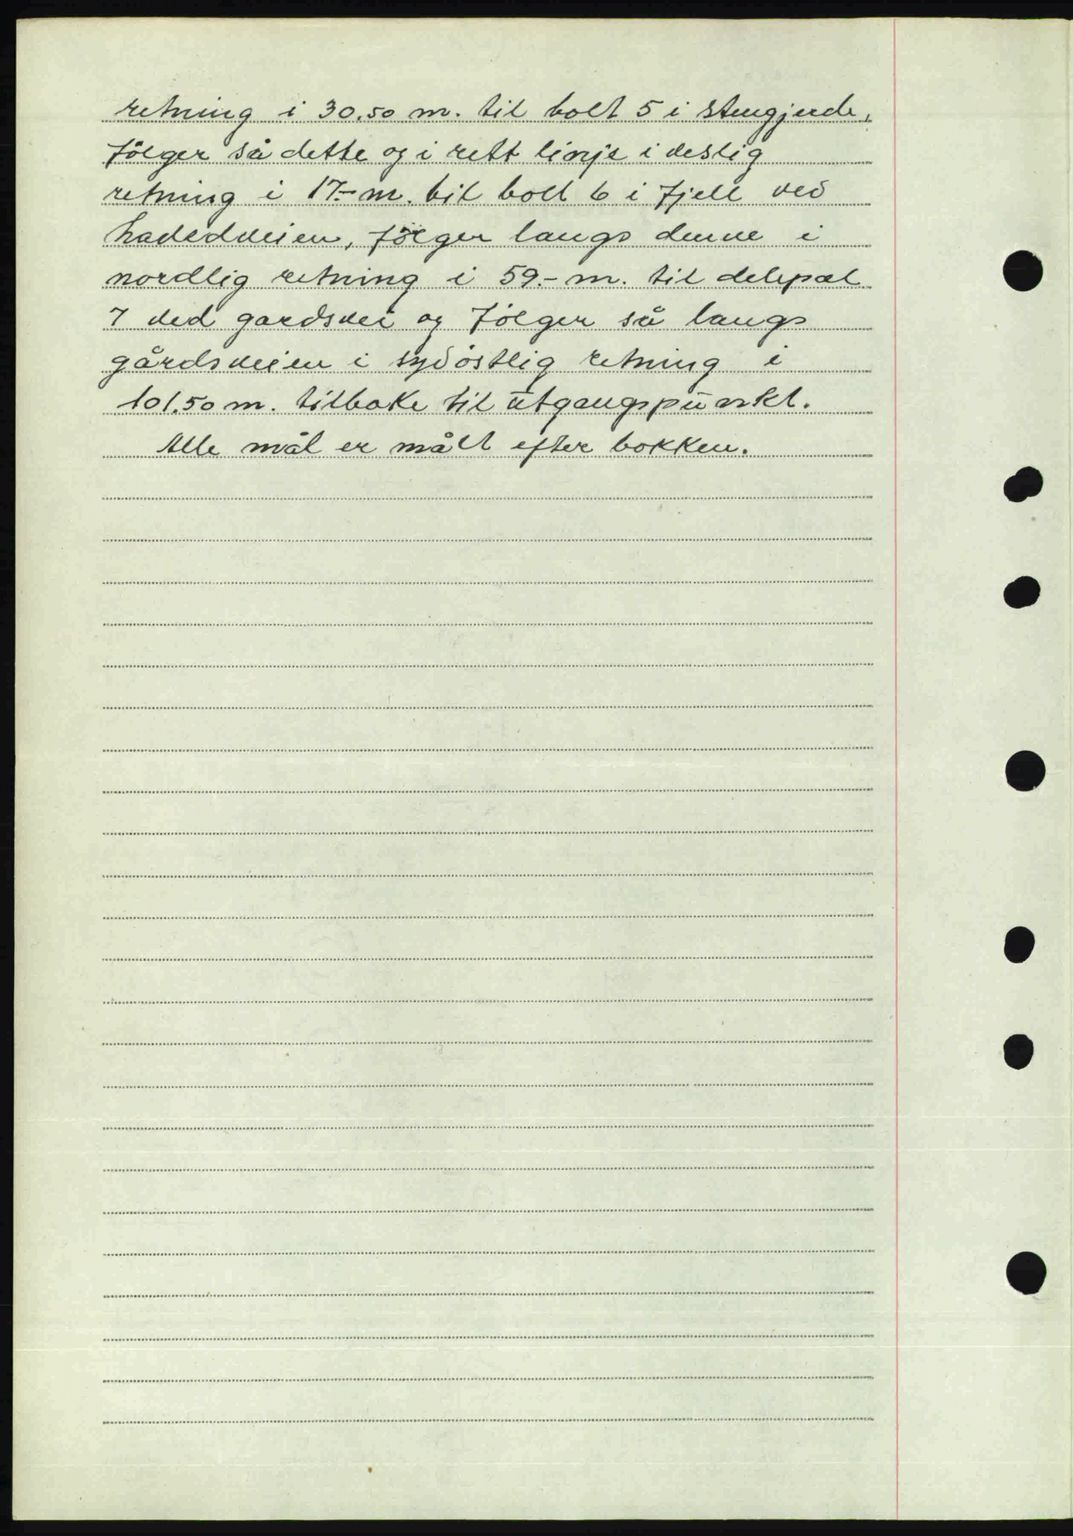 retning i 30.50 m. til bolt 5 i stengjerde,
følger så dette og i rett linje i vestlig
retning i 17.- m. til bolt 6 i fjell ved
hovedveien, følger langs denne i
nordlig retning i 59.- m. til delepæl
7 ved gardsvei og følger så langs
gårdsveien i sydöstlig retning i
101.50 m. tilbake til utgangspunkt.
Alle mål er målt efter bakken.